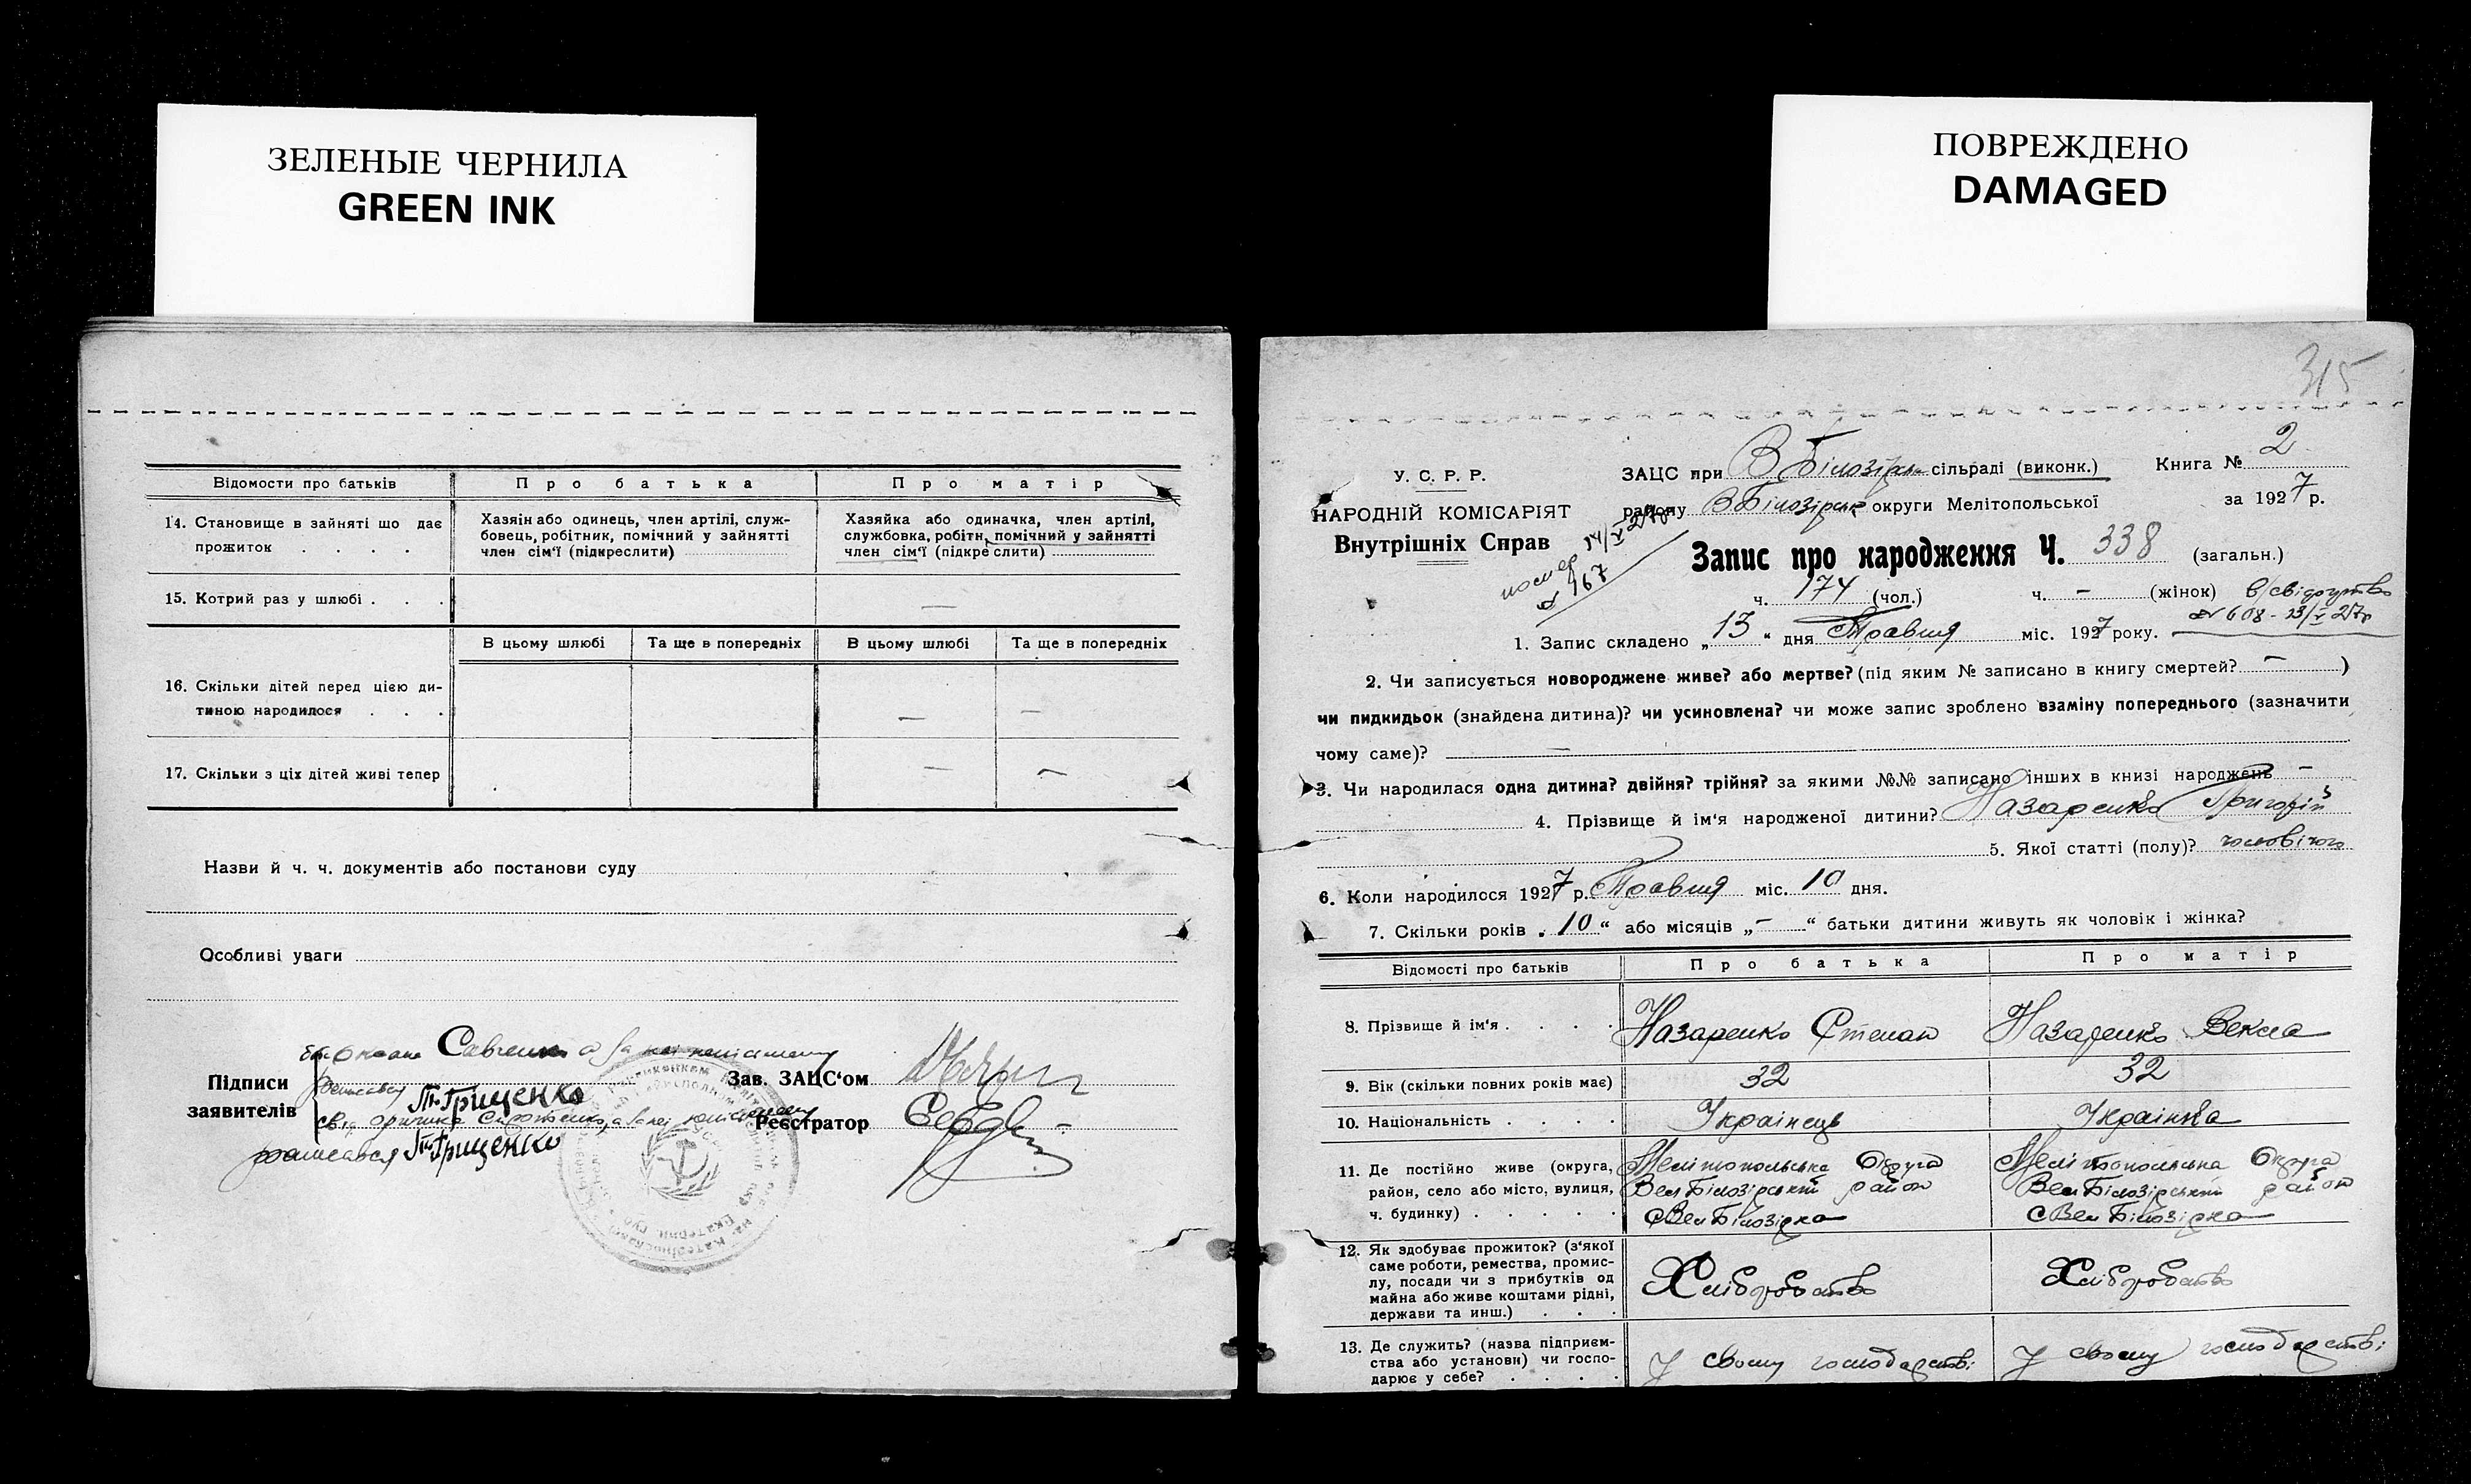 ЗЕЛЕНЫЕ ЧЕРНИЛА
GREEN INK
ПОВРЕЖДЕНО
DAMAGED
Відомости про батьків
Про батька
Про матір
14. Становище в зайняті що дає
прожиток . . . .
Хазяїн або одинець, член артілі, служ-
бовець, робітник, помічний у зайнятті
член сім'ї (підкреслити)
Хазяйка або одиначка, член артілі,
службовка, робітн, помічний у зайнятті
член сім'ї (підкреслити)
15. Котрий раз у шлюбі . . . —
В цьому шлюбі
Та ще в попередніх
В цьому шлюбі
Та ще в попередніх
16. Скільки дітей перед цією ди-
тиною народилося . . . — —
17. Скільки з ціх дітей живі тепер — —
Назви й ч. ч. документів або постанови суду
Особливі уваги
Савченко а за
Підписи
заявителів
Зав. ЗАЦС'ом
Гриценко
Реєстратор
росписався Гриценко
315
У. С. Р. Р.
НАРОДНІЙ КОМІСАРІЯТ
Внутрішніх Справ
ЗАЦС при В Білозірськ сільраді (виконк.) Книга № 2
району В Білозірськ округи Мелітопольської за 1927 р.
Запис про народження Ч. 338 (загальн.)
ч. 174 (чол.) ч. – (жінок) в/свідоцтво
№ 608 - 13/V 27р
1. Запис складено „13“ дня Травня міс. 1927 року.
2. Чи записується новороджене живе? або мертве? (під яким № записано в книгу смертей? – )
чи пидкидьок (знайдена дитина)? чи усиновлена? чи може запис зроблено взаміну попереднього (зазначити
чому саме)? —
3. Чи народилася одна дитина? двійня? трійня? за якими №№ записано інших в книзі народжень –
4. Прізвище й ім'я народженої дитини? Назаренко Григорій
5. Якої статті (полу)? чоловічого
6. Коли народилося 1927 р. Травня міс. 10 дня.
7. Скільки років „10“ або місяців „–“ батьки дитини живуть як чоловік і жінка?
Відомості про батьків
Про батька
Про матір
8. Прізвище й ім'я . . . . Назаренко Степан Назаренко Векла
9. Вік (скільки повних років має) 32 32
10. Національність . . . . Українець Українка
11. Де постійно живе (округа,
район, село або місто, вулиця,
ч. будинку) . . . . .
Мелітопольська Округа
Вел Білозірський район
с Вел Білозірка
Мелітопольська Округа
Вел Білозірський район
с Вел Білозірка
12. Як здобуває прожиток? (з'якої
саме роботи, ремества, промис-
лу, посади чи з прибутків од
майна або живе коштами рідні,
держави та инш.) . . .
Хліборобство
Хліборобство
13. Де служить? (назва підприєм-
ства або установи) чи госпо-
дарює у себе? . . . .
У свому господарстві
У свому господарстві